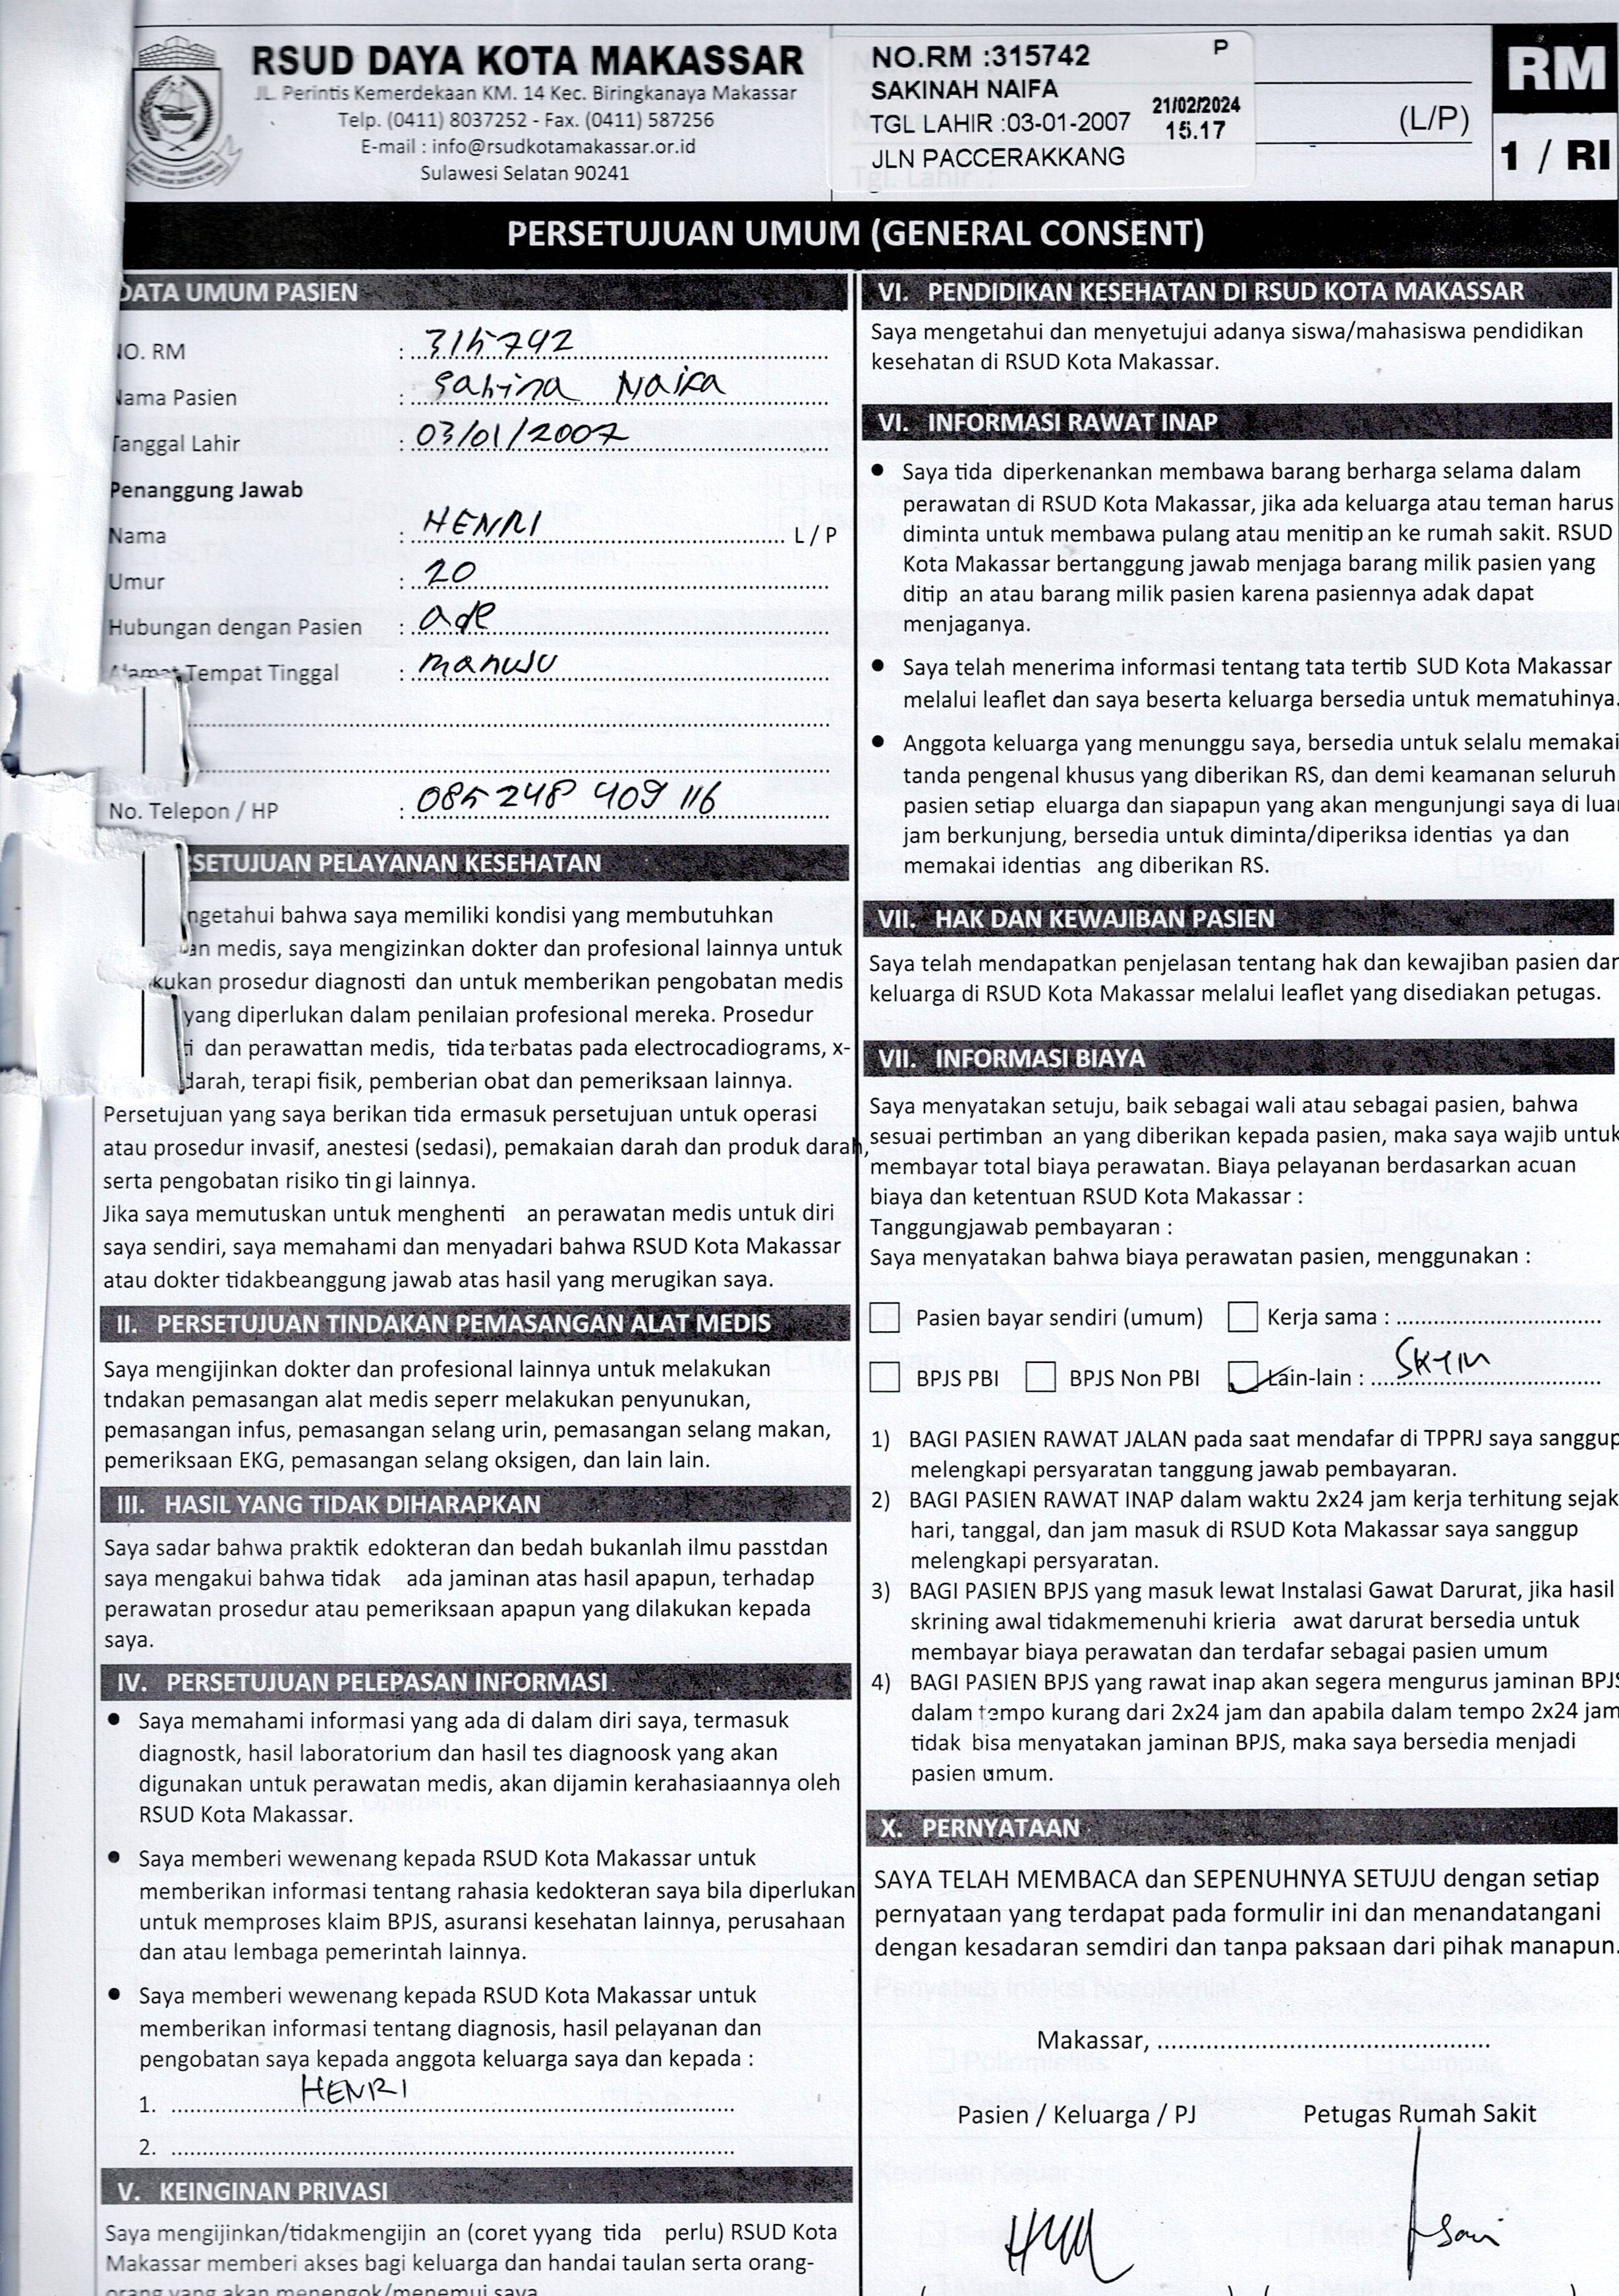 RSUD DAYA KOTA MAKASSAR
JL. Perintis Kemerdekaan KM. 14 Kec. Biringkanaya Makassar
Telp. (0411) 8037252 - Fax. (0411) 587256
E-mail : info@rsudkotamakassar.or.id
Sulawesi Selatan 90241
NO.RM :315742 P
SAKINAH NAIFA
TGL LAHIR :03-01-2007
21/02/2024
15.17
JLN PACCERAKKANG
(L/P)
RM
1 / RI
PERSETUJUAN UMUM (GENERAL CONSENT)
DATA UMUM PASIEN
NO. RM : 315742
Nama Pasien : Sakina Naifa
Tanggal Lahir : 03/01/2007
Penanggung Jawab
Nama : HENRI L / P
Umur : 20
Hubungan dengan Pasien : ade
Alamat Tempat Tinggal : manuju
No. Telepon / HP : 085 248 409 116
SETUJUAN PELAYANAN KESEHATAN
ngetahui bahwa saya memiliki kondisi yang membutuhkan
an medis, saya mengizinkan dokter dan profesional lainnya untuk
kukan prosedur diagnosti dan untuk memberikan pengobatan medis
yang diperlukan dalam penilaian profesional mereka. Prosedur
i dan perawattan medis, tida terbatas pada electrocadiograms, x-
darah, terapi fisik, pemberian obat dan pemeriksaan lainnya.
Persetujuan yang saya berikan tida ermasuk persetujuan untuk operasi
atau prosedur invasif, anestesi (sedasi), pemakaian darah dan produk darah,
serta pengobatan risiko tin gi lainnya.
Jika saya memutuskan untuk menghenti an perawatan medis untuk diri
saya sendiri, saya memahami dan menyadari bahwa RSUD Kota Makassar
atau dokter tidakbeanggung jawab atas hasil yang merugikan saya.
II. PERSETUJUAN TINDAKAN PEMASANGAN ALAT MEDIS
Saya mengijinkan dokter dan profesional lainnya untuk melakukan
tndakan pemasangan alat medis seperr melakukan penyunukan,
pemasangan infus, pemasangan selang urin, pemasangan selang makan,
pemeriksaan EKG, pemasangan selang oksigen, dan lain lain.
III. HASIL YANG TIDAK DIHARAPKAN
Saya sadar bahwa praktik edokteran dan bedah bukanlah ilmu passtdan
saya mengakui bahwa tidak ada jaminan atas hasil apapun, terhadap
perawatan prosedur atau pemeriksaan apapun yang dilakukan kepada
saya.
IV. PERSETUJUAN PELEPASAN INFORMASI
• Saya memahami informasi yang ada di dalam diri saya, termasuk
diagnostk, hasil laboratorium dan hasil tes diagnoosk yang akan
digunakan untuk perawatan medis, akan dijamin kerahasiaannya oleh
RSUD Kota Makassar.
• Saya memberi wewenang kepada RSUD Kota Makassar untuk
memberikan informasi tentang rahasia kedokteran saya bila diperlukan
untuk memproses klaim BPJS, asuransi kesehatan lainnya, perusahaan
dan atau lembaga pemerintah lainnya.
• Saya memberi wewenang kepada RSUD Kota Makassar untuk
memberikan informasi tentang diagnosis, hasil pelayanan dan
pengobatan saya kepada anggota keluarga saya dan kepada :
1. HENRI
2.
V. KEINGINAN PRIVASI
Saya mengijinkan/tidakmengijin an (coret yyang tida perlu) RSUD Kota
Makassar memberi akses bagi keluarga dan handai taulan serta orang-
orang yang akan menengok/menemui saya
VI. PENDIDIKAN KESEHATAN DI RSUD KOTA MAKASSAR
Saya mengetahui dan menyetujui adanya siswa/mahasiswa pendidikan
kesehatan di RSUD Kota Makassar.
VI. INFORMASI RAWAT INAP
• Saya tida diperkenankan membawa barang berharga selama dalam
perawatan di RSUD Kota Makassar, jika ada keluarga atau teman harus
diminta untuk membawa pulang atau menitip an ke rumah sakit. RSUD
Kota Makassar bertanggung jawab menjaga barang milik pasien yang
ditip an atau barang milik pasien karena pasiennya adak dapat
menjaganya.
• Saya telah menerima informasi tentang tata tertib SUD Kota Makassar
melalui leaflet dan saya beserta keluarga bersedia untuk mematuhinya.
• Anggota keluarga yang menunggu saya, bersedia untuk selalu memakai
tanda pengenal khusus yang diberikan RS, dan demi keamanan seluruh
pasien setiap eluarga dan siapapun yang akan mengunjungi saya di luar
jam berkunjung, bersedia untuk diminta/diperiksa identias ya dan
memakai identias ang diberikan RS.
VII. HAK DAN KEWAJIBAN PASIEN
Saya telah mendapatkan penjelasan tentang hak dan kewajiban pasien dan
keluarga di RSUD Kota Makassar melalui leaflet yang disediakan petugas.
VII. INFORMASI BIAYA
Saya menyatakan setuju, baik sebagai wali atau sebagai pasien, bahwa
sesuai pertimban an yang diberikan kepada pasien, maka saya wajib untuk
membayar total biaya perawatan. Biaya pelayanan berdasarkan acuan
biaya dan ketentuan RSUD Kota Makassar :
Tanggungjawab pembayaran :
Saya menyatakan bahwa biaya perawatan pasien, menggunakan :
Pasien bayar sendiri (umum) Kerja sama :
BPJS PBI BPJS Non PBI Lain-lain : SKTM
1) BAGI PASIEN RAWAT JALAN pada saat mendafar di TPPRJ saya sanggup
melengkapi persyaratan tanggung jawab pembayaran.
2) BAGI PASIEN RAWAT INAP dalam waktu 2x24 jam kerja terhitung sejak
hari, tanggal, dan jam masuk di RSUD Kota Makassar saya sanggup
melengkapi persyaratan.
3) BAGI PASIEN BPJS yang masuk lewat Instalasi Gawat Darurat, jika hasil
skrining awal tidakmemenuhi krieria awat darurat bersedia untuk
membayar biaya perawatan dan terdafar sebagai pasien umum
4) BAGI PASIEN BPJS yang rawat inap akan segera mengurus jaminan BPJS
dalam tempo kurang dari 2x24 jam dan apabila dalam tempo 2x24 jam
tidak bisa menyatakan jaminan BPJS, maka saya bersedia menjadi
pasien umum.
X. PERNYATAAN
SAYA TELAH MEMBACA dan SEPENUHNYA SETUJU dengan setiap
pernyataan yang terdapat pada formulir ini dan menandatangani
dengan kesadaran semdiri dan tanpa paksaan dari pihak manapun.
Makassar,
Pasien / Keluarga / PJ Petugas Rumah Sakit